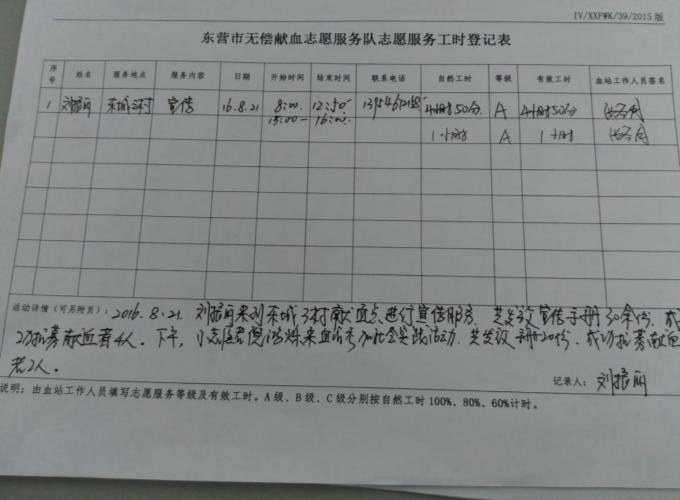 IV/XXFWK/39/2015版
东营市无偿献血志愿服务队志愿服务工时登记表
序号 姓名 服务地点 服务内容 日期 开始时间 结束时间 联系电话 自然工时 等级 有效工时 血站工作人员签名
1 刘振丽 东城3村 宣传 16.8.21 8:00 12:50 4小时50分 A 4小时50分
15:00— 16:00 1小时 A 1小时
活动详情(可另附页):2016.8.21. 刘振丽来到东城3村献血点进行宣传服务,共发放宣传手册30余份,成
功招募献血者4人。下午,小志愿者 来血站参加社会实践活动,共发放手册20份,成功招募献血
者2人。
记录人: 刘振丽
说明:由血站工作人员填写志愿服务等级及有效工时。A级、B级、C级分别按自然工时100%、80%、60%计时。